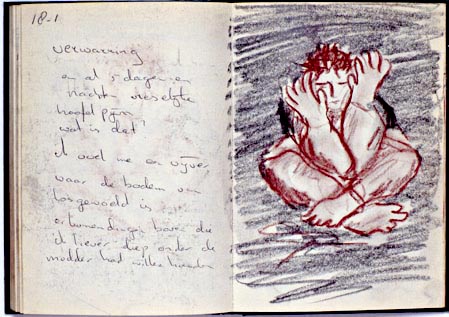 18-1
verwarring
en al 5 dagen en
nachten vreselijke
hoofdpijn
wat is dat
ik voel me een vijver,
waar de bodem van
losgewoeld is
er komen dingen boven die
ik liever diep onder de
modder had willen houden